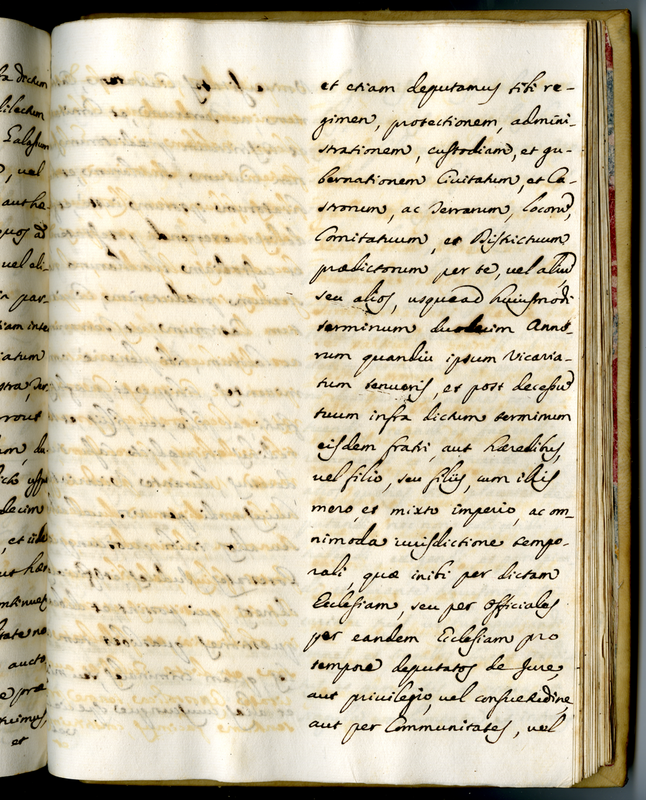 fa dictum
dilectum
Galassium
vel
aut hæ
quos ad
vel ali-
in par-
iam inter
iatum
prout
decim
, et
aut hær
tate no
aucto
e præ
tuimus,
et
et etiam deputamus tibi re-
gimen, protectionem, admini-
strationem, custodiam, et gu-
bernationem Civitatum, et Ca-
strorum, ac Terrarum, locorũ,
Comitatuum, et Districtuum
prædictorum per te, vel aliũ
seu alios, usque ad huiusmodi
terminum duodecim Anno-
rum quandiu ipsum Vicaria-
tum tenueris, et post decessũ
tuum infra dictum terminum
eisdem fratri, aut hæredibus,
vel filio, seu filijs, cum illis
mero, et mixto imperio, ac om-
nimoda iurisdictione tempo-
rali, quæ inibi per dictam
Ecclesiam, seu per officiales
per eandem Ecclesiam pro
tempore deputatos de Jure,
aut privilegio, vel consuetudine,
aut per Communitates, vel